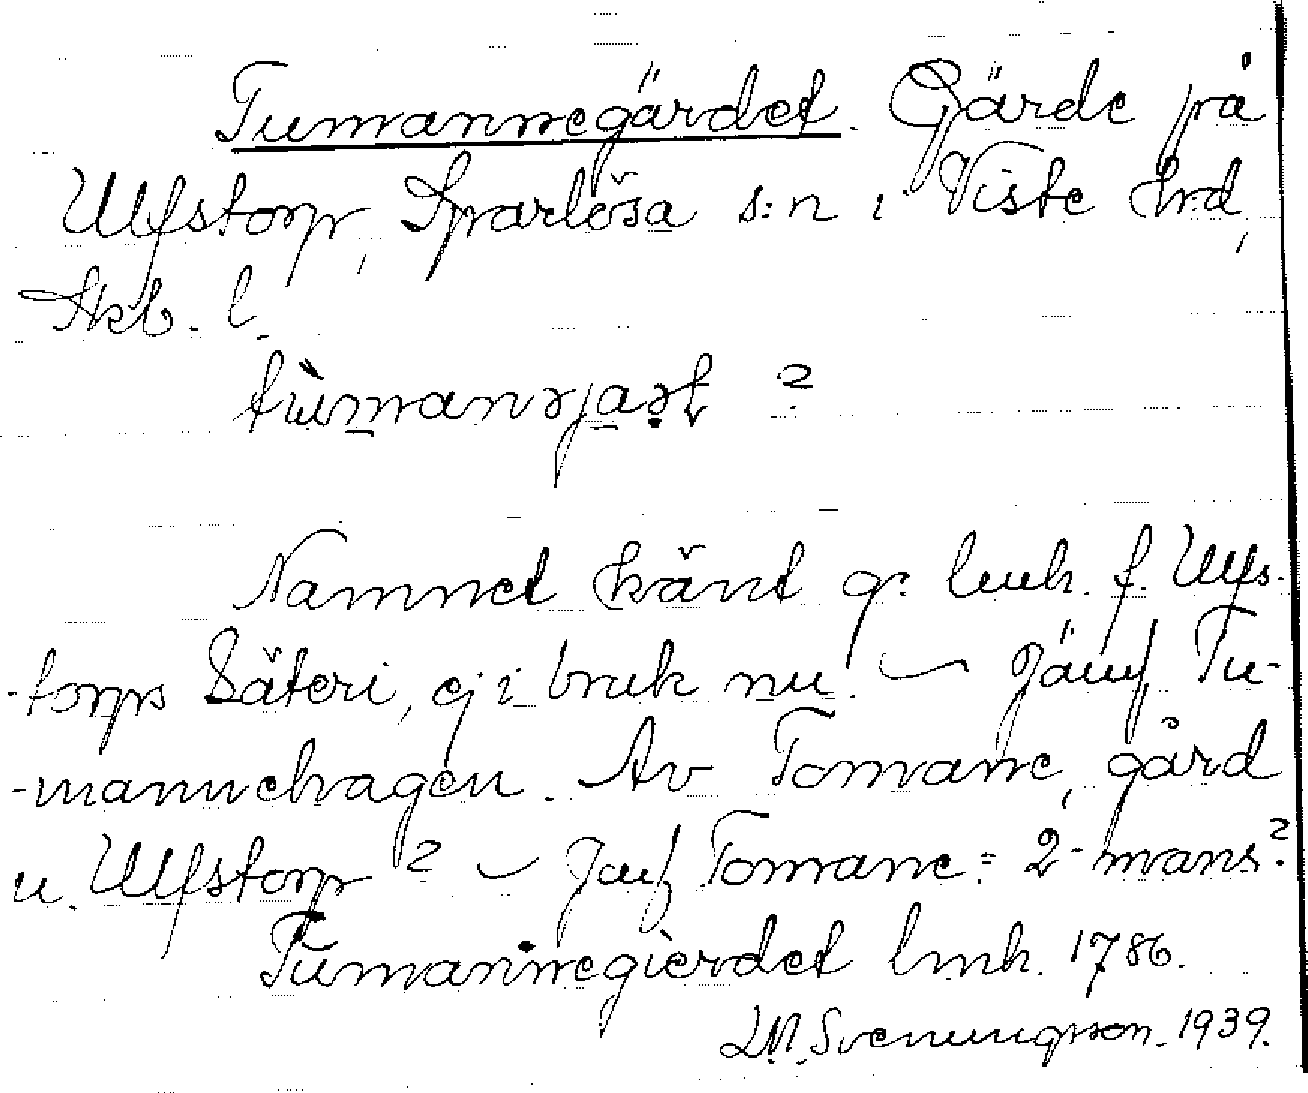 Tumannegärdet. Gärde på
Ulfstorp, Sparlösa s:n i Viste hrd,
Skb. l.
tùmanəjaʂt ?
Namnet känt gr. lmh. f. Ulfs-
-torps Säteri, ej i bruk nu. — Jämf. Tu-
-mannehagen. Av Tomane, gård
u. Ulfstorp ? — Jmf Tomane = 2-mans?
Tumannegierdet lmh. 1786.
Svenungsson. 1939.